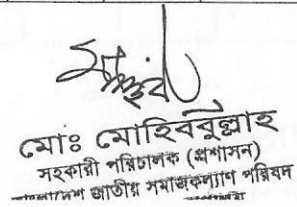 মোঃ মোহিববুল্লাহ
সহকারী পরিচালক (প্রশাসন)
বাংলাদেশ জাতীয় সমাজকল্যাণ পরিষদ